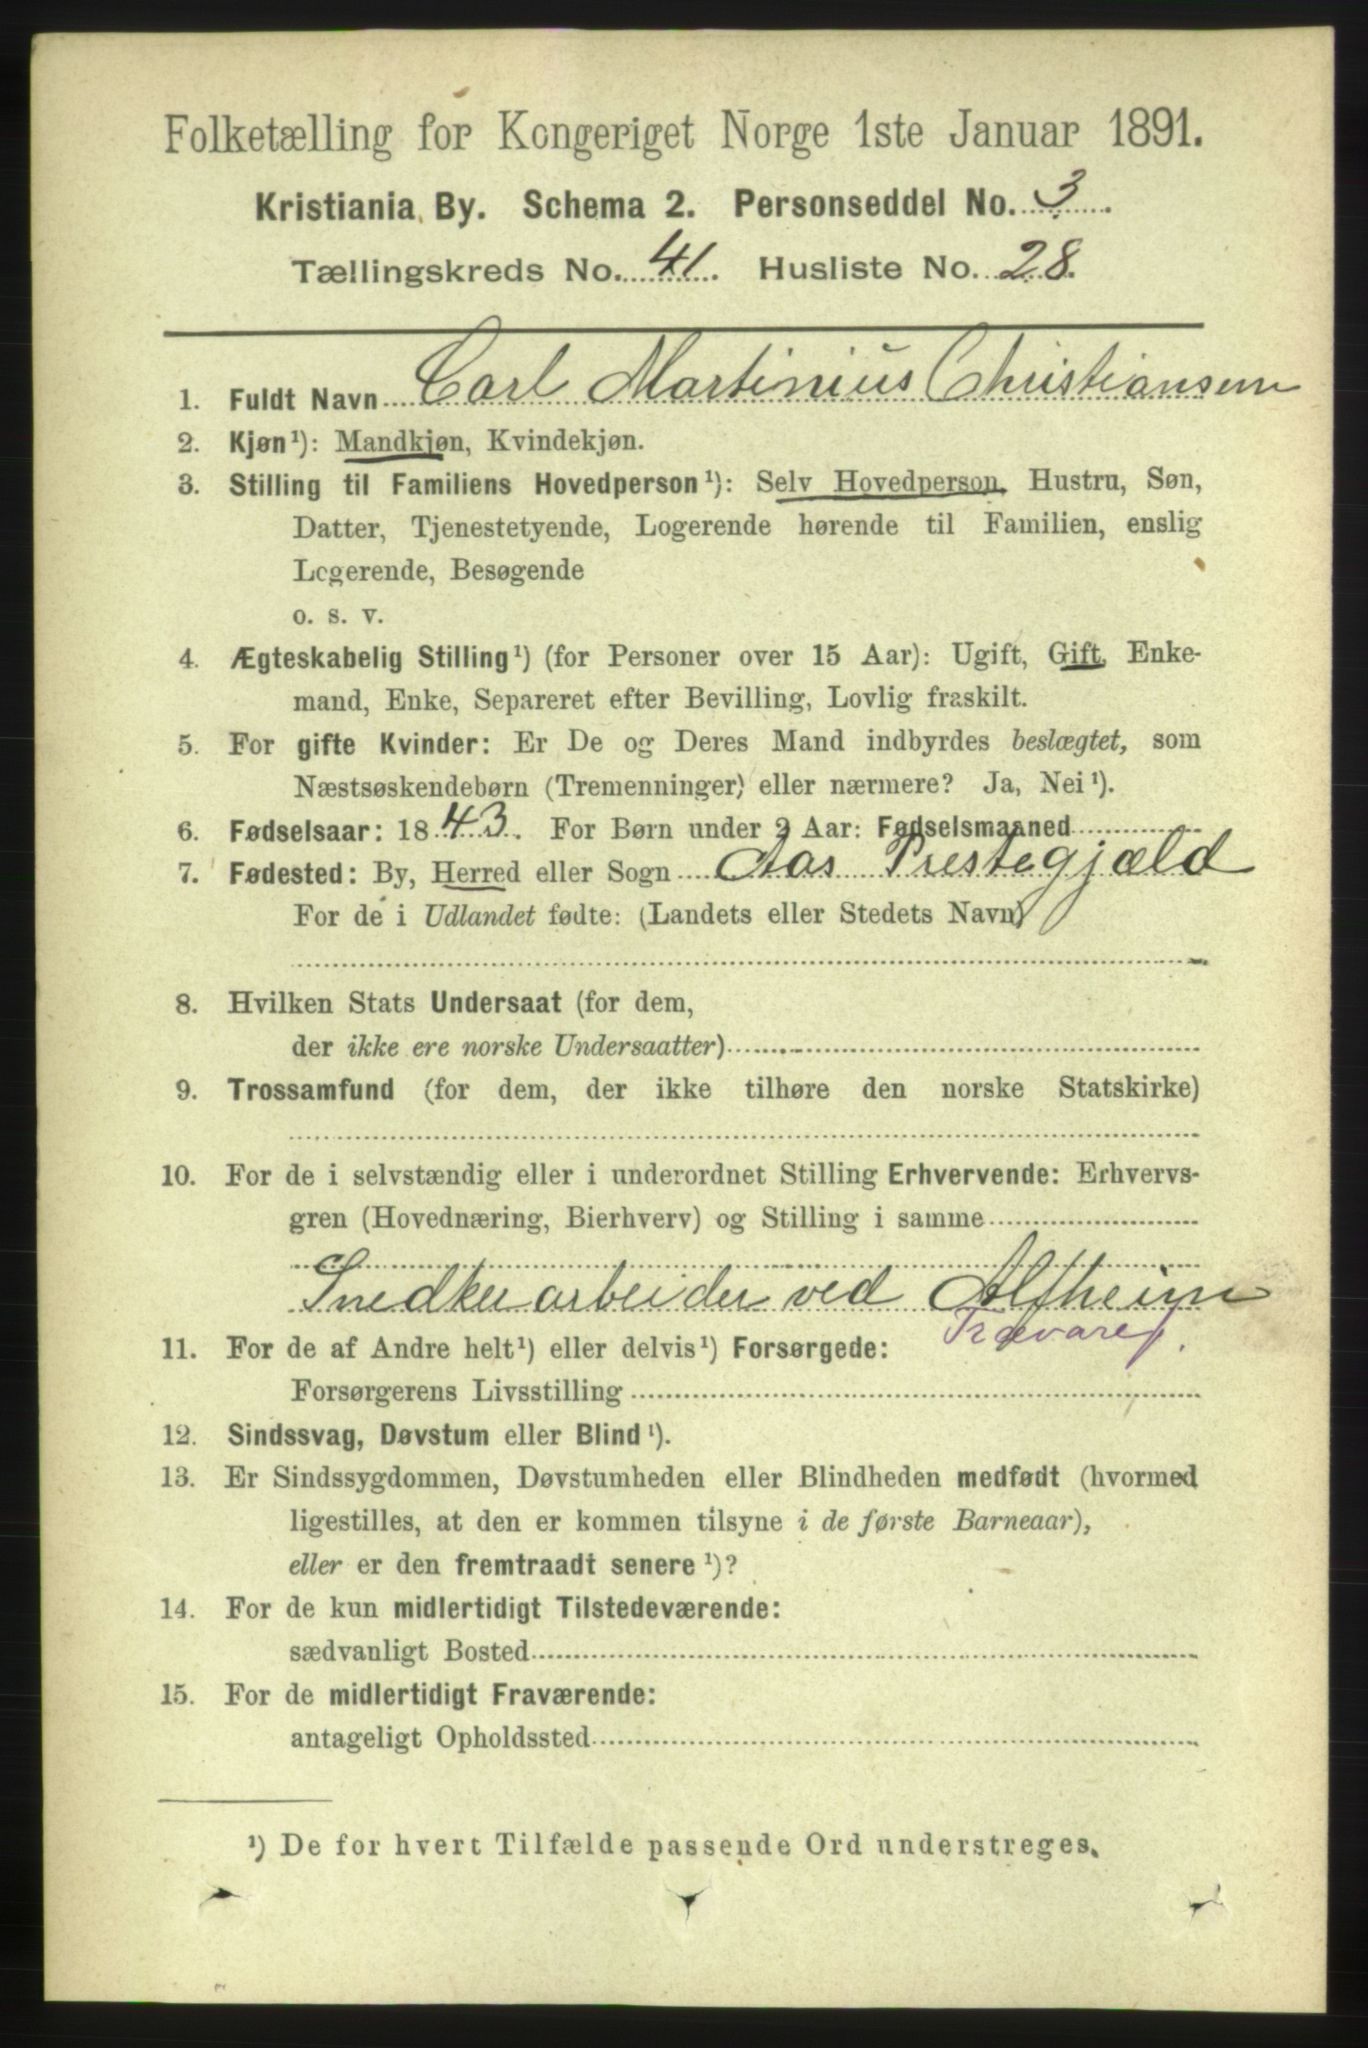 Folketælling for Kongeriget Norge 1ste Januar 1891.
Kristiania By. Schema 2. Personseddel No. 3.
Tællingskreds No. 41. Husliste No. 28.
1. Fuldt Navn Carl Martinius Christiansen
2. Kjøn¹): Mandkjøn, Kvindekjøn.
3. Stilling til Familiens Hovedperson¹): Selv Hovedperson, Hustru, Søn,
Datter, Tjenestetyende, Logerende hørende til Familien, enslig
Logerende, Besøgende
o. s. v.
4. Ægteskabelig Stilling¹) (for Personer over 15 Aar): Ugift, Gift, Enke-
mand, Enke, Separeret efter Bevilling, Lovlig fraskilt.
5. For gifte Kvinder: Er De og Deres Mand indbyrdes beslægtet, som
Næstsøskendebørn (Tremenninger) eller nærmere? Ja, Nei¹).
6. Fødselsaar: 1843. For Børn under 2 Aar: Fødselsmaaned
7. Fødested: By, Herred eller Sogn Aas Prestegjæld
For de i Udlandet fødte: (Landets eller Stedets Navn)
8. Hvilken Stats Undersaat (for dem,
der ikke ere norske Undersaatter)
9. Trossamfund (for dem, der ikke tilhøre den norske Statskirke)
10. For de i selvstændig eller i underordnet Stilling Erhvervende: Erhvervs-
gren (Hovednæring, Bierhverv) og Stilling i samme
Snedkerarbeider ved Alfheim
Trævaref.
11. For de af Andre helt¹) eller delvis¹) Forsørgede:
Forsørgerens Livsstilling
12. Sindssvag, Døvstum eller Blind¹).
13. Er Sindssygdommen, Døvstumheden eller Blindheden medfødt (hvormed
ligestilles, at den er kommen tilsyne i de første Barneaar),
eller er den fremtraadt senere¹)?
14. For de kun midlertidigt Tilstedeværende:
sædvanligt Bosted
15. For de midlertidigt Fraværende:
antageligt Opholdssted
¹) De for hvert Tilfælde passende Ord understreges.